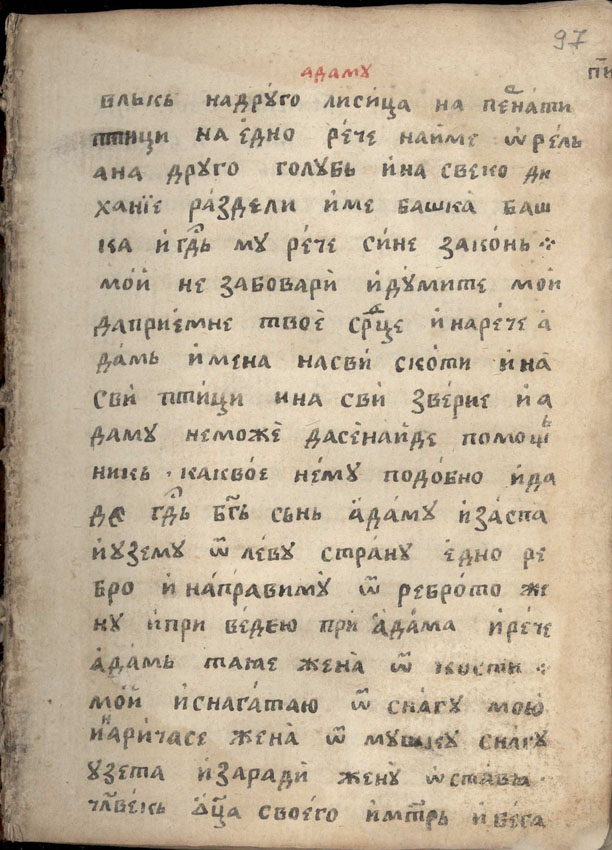 97
адамѹ
пи҃
влькь на дрꙋ́го лиси́ца на пена́ти
птици на е҆дно ре́че наи҆ме ѡ҆ре́ль
а на дрꙋго голꙋбь и҆ на свеко ди
ханїе раздели и҆ме башка̀ баш
ка и҆ гдⷭ҇ь мꙋ ре́че си́не зако́нь ⁘
мо́й не забовари и҆ дꙋ́мите мои
да прие́мне твоѐ срⷣце и҆ наре́че а҆
да́мь и҆мена на сви́ ско́ти и҆ на̀
сви̏ пти́ци и на сви̏ зве́рие и҆ а
дамꙋ не може̏ да се на́йде помощ
никь · какво́е не́мꙋ подо́бно и҆ да
де гдⷭ҇ь бг҃ь сьнь а҆да́мꙋ и҆ за́спа
и҆ ꙋземꙋ ѿ ле́вꙋ стра́нꙋ е҆дно ре
бро и҆ на́прави мꙋ̀ ѿ ребро́то же
нꙋ и҆ приведе ю при̏ а҆да́ма и҆ ре́че
а҆да́мь таѥ жена̀ ѿ кости ⁘
мо́й и҆ снага́та ю ѿ сна́гꙋ мою̀
и҆ нари́часе жена̀ ѿ мꙋшкꙋ сна́гꙋ
ꙋзета и҆ заради̏ женꙋ̀ ѡ҆ста́вѧ
чл҃векь ѡ҆ц҃а своего и҆ мт҃рь и҆ вега